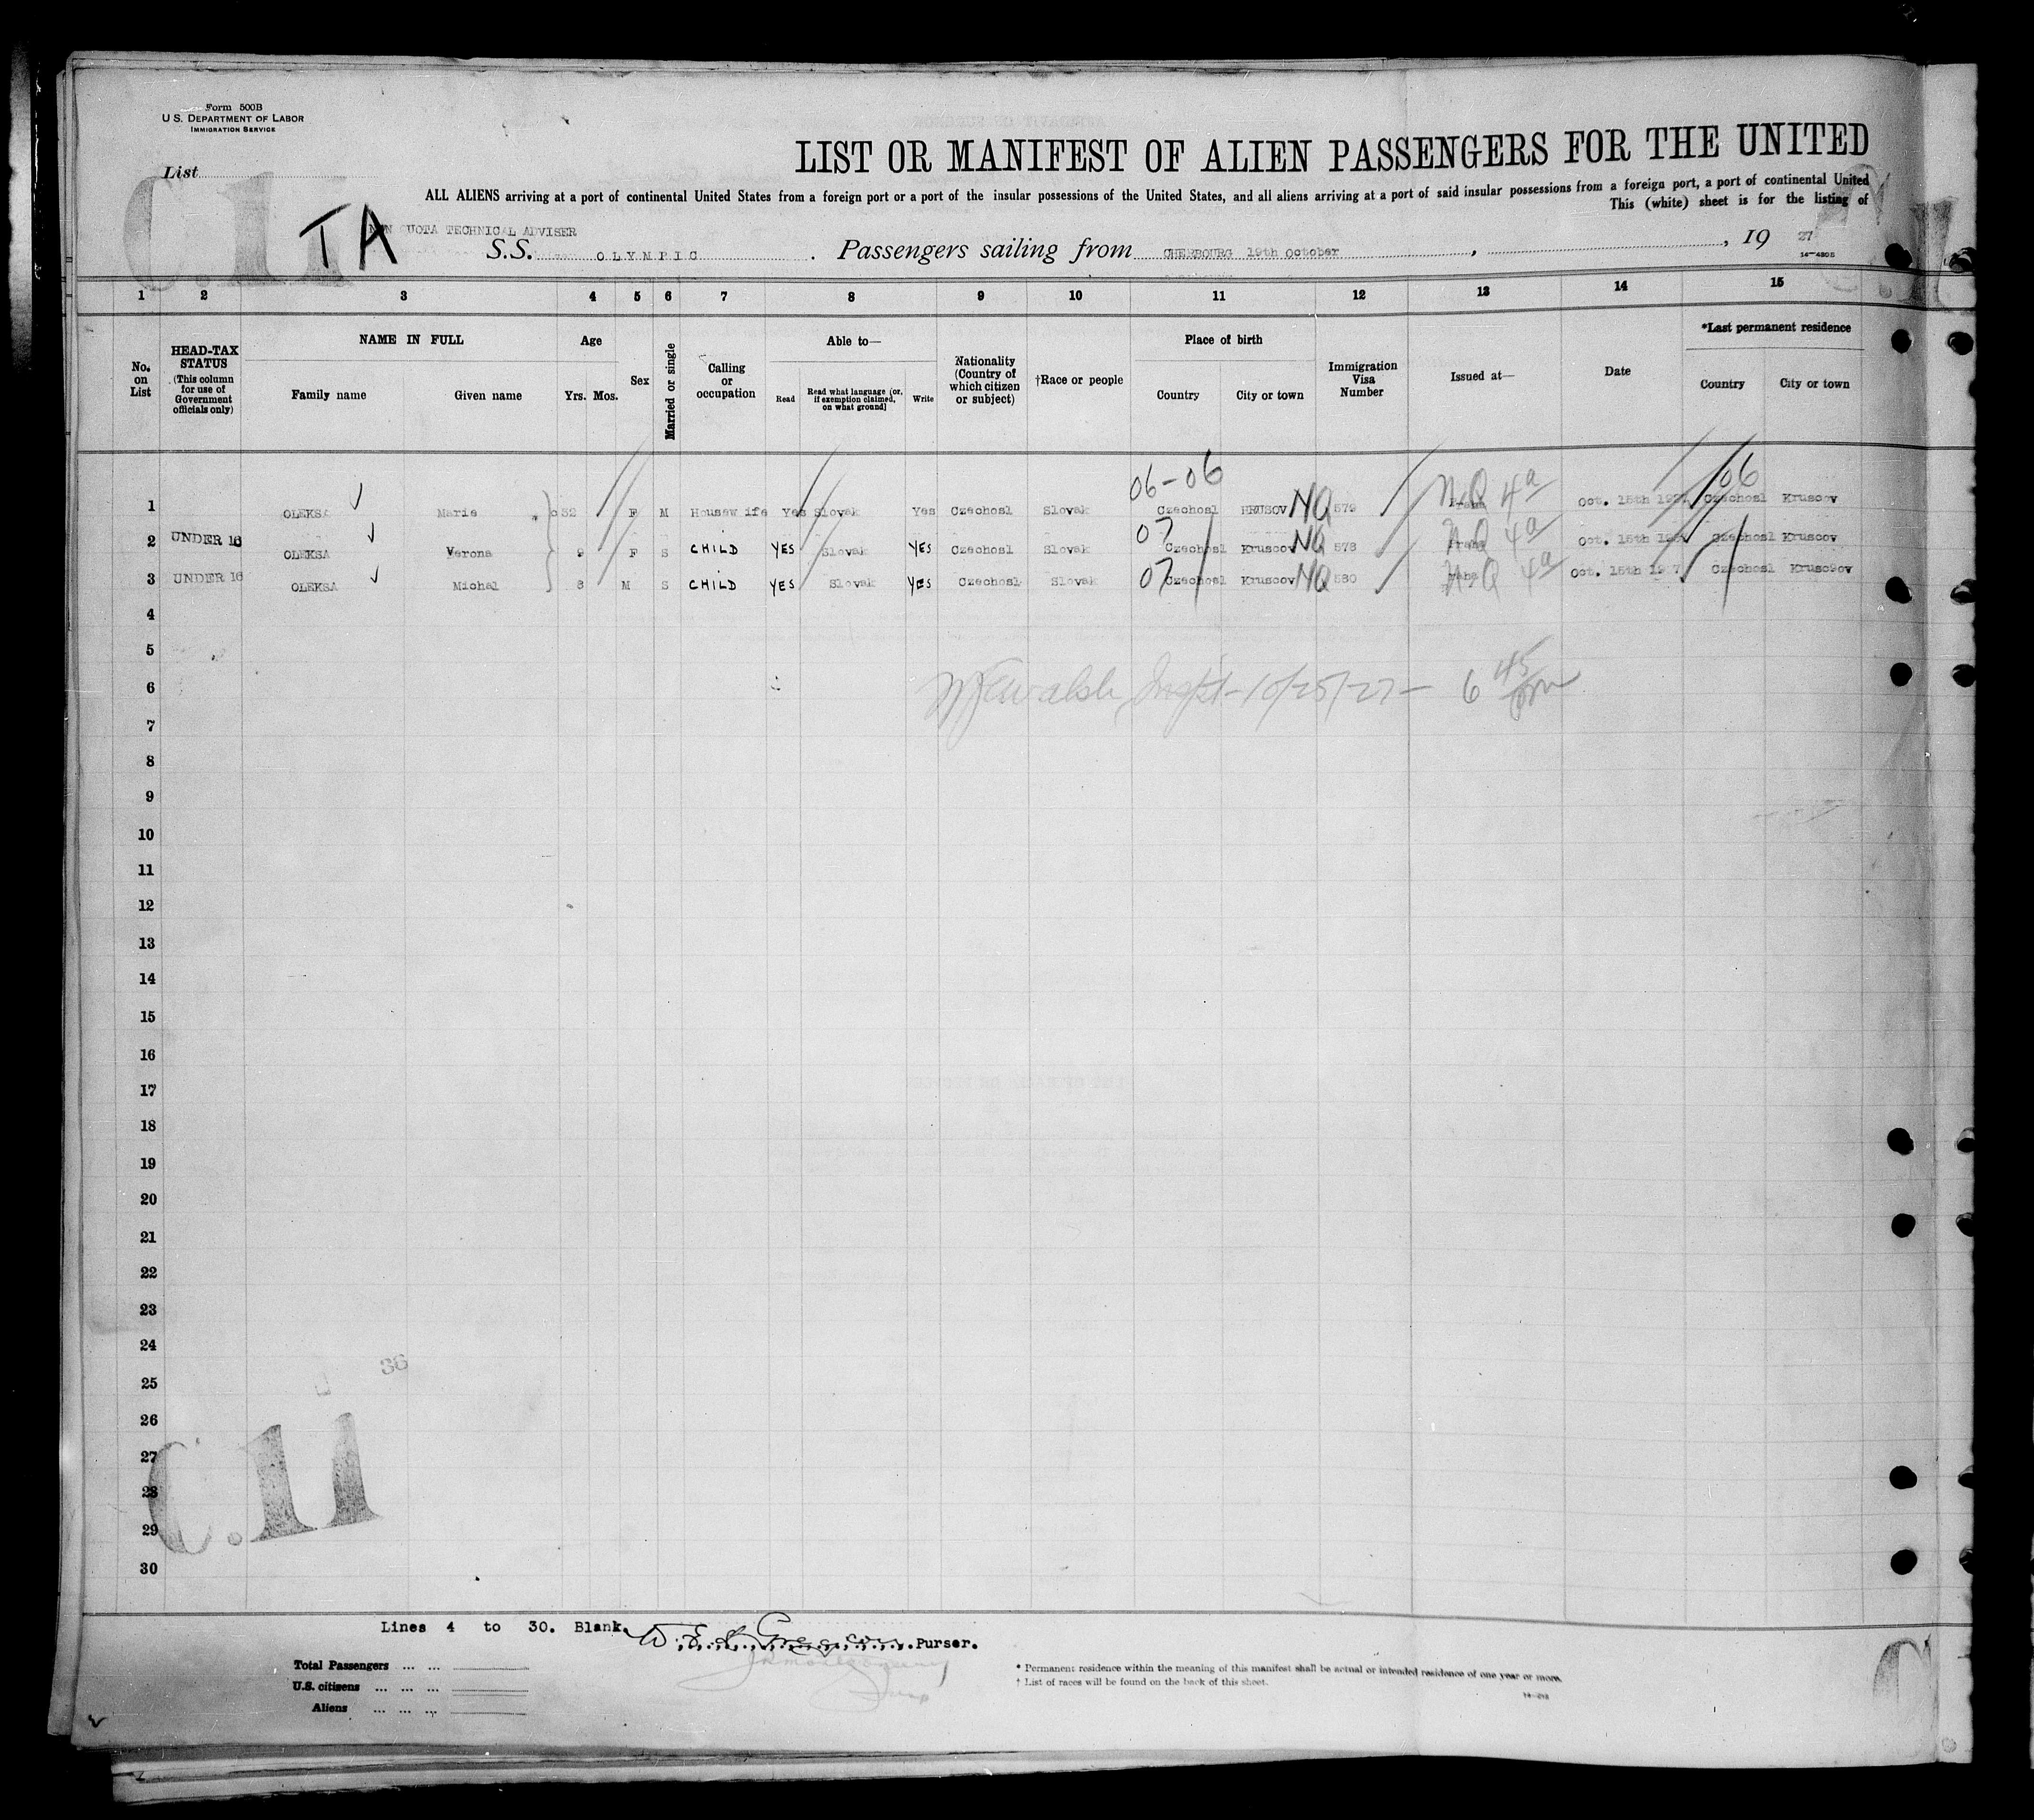 Form 500B
U S. DEPARTMENT OF LABOR
IMMIGRATION SERVICE
List
LIST OR MANIFEST OF ALIEN PASSENGERS FOR THE UNITED
ALL ALIENS arriving at a port of continental United States from a foreign port or a port of the insular possessions of the United States, and all aliens arriving at a port of said insular possessions from a foreign port, a port of continental United
This (white) sheet is for the listing of
TA
UOTA TECHNICAL ADVISER
S.S. OLYMPIC . Passengers sailing from CHERBOURG 19th October , , 19 27
1 2 3 4 5 6 7 8 9 10 11 12 13 14 15
No. on List
HEAD-TAX STATUS (This column for use of Government officials only)
NAME IN FULL
Family name Given name
Age
Yrs. Mos.
Sex
Married or single
Calling or occupation
Able to—
Read Read what language (or, if exemption claimed, on what ground) Write
Nationality (Country of which citizen or subject)
†Race or people
Place of birth
Country City or town
Immigration Visa Number
Issued at—
Date
*Last permanent residence
Country City or town
06-06 NQ 4a 06
1 OLEKSA Marie 32 F M Housewife Yes Slovak Yes Czechosl Slovak Czechosl HRUSOV NQ 579 Praha Oct. 15th 1927 Czechosl Kruscov
07 NQ 4a
2 UNDER 16 OLEKSA Verona 9 F S CHILD YES Slovak YES Czechosl Slovak Czechosl Kruscov NQ 578 Praha Oct. 15th Czechosl Kruscov
07 NQ 4a
3 UNDER 16 OLEKSA Michal 8 M S CHILD YES Slovak YES Czechosl Slovak Czechosl Kruscov NQ 580 Praha Oct. 15th 1927 Czechosl
4
5
6 Walsh Inspt-10/25/-27- 6 45 pm
7
8
9
10
11
12
13
14
15
16
17
18
19
20
21
22
23
24
36
25
26
27
28
29
30
C.II
Lines 4 to 30. Blank. Purser.
Total Passengers ... ...
U.S. citizens ... ... ...
Aliens ... ... ...
* Permanent residence within the meaning of this manifest shall be actual or intended residence of one year or more.
† List of races will be found on the back of this sheet.